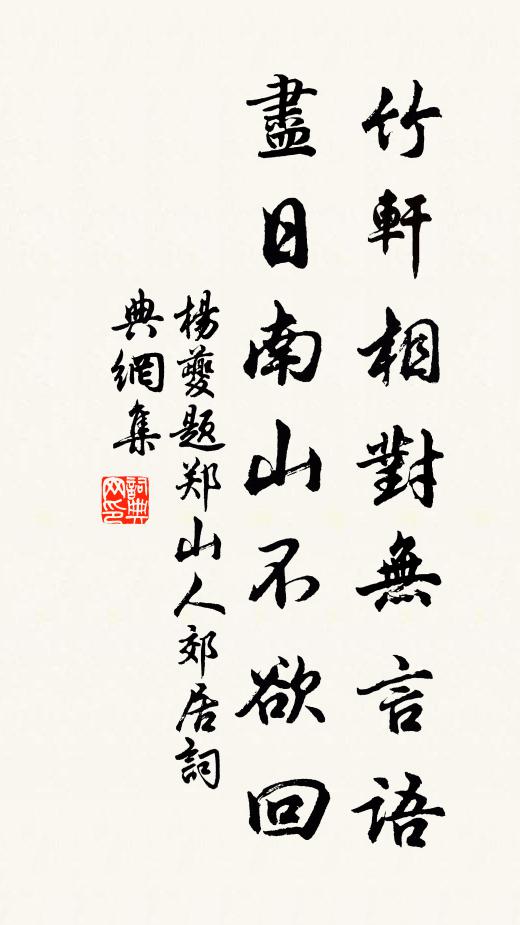 竹軒相對無言語
盡日南山不欲回
楊夔題郑山人郊居詞
典網集
詞典
网印